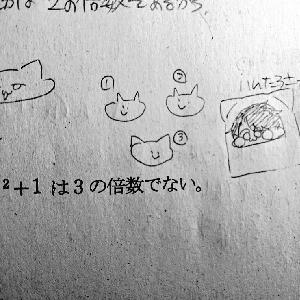 は2の倍数であるから
① ②
③
²+1 は3の倍数でない。